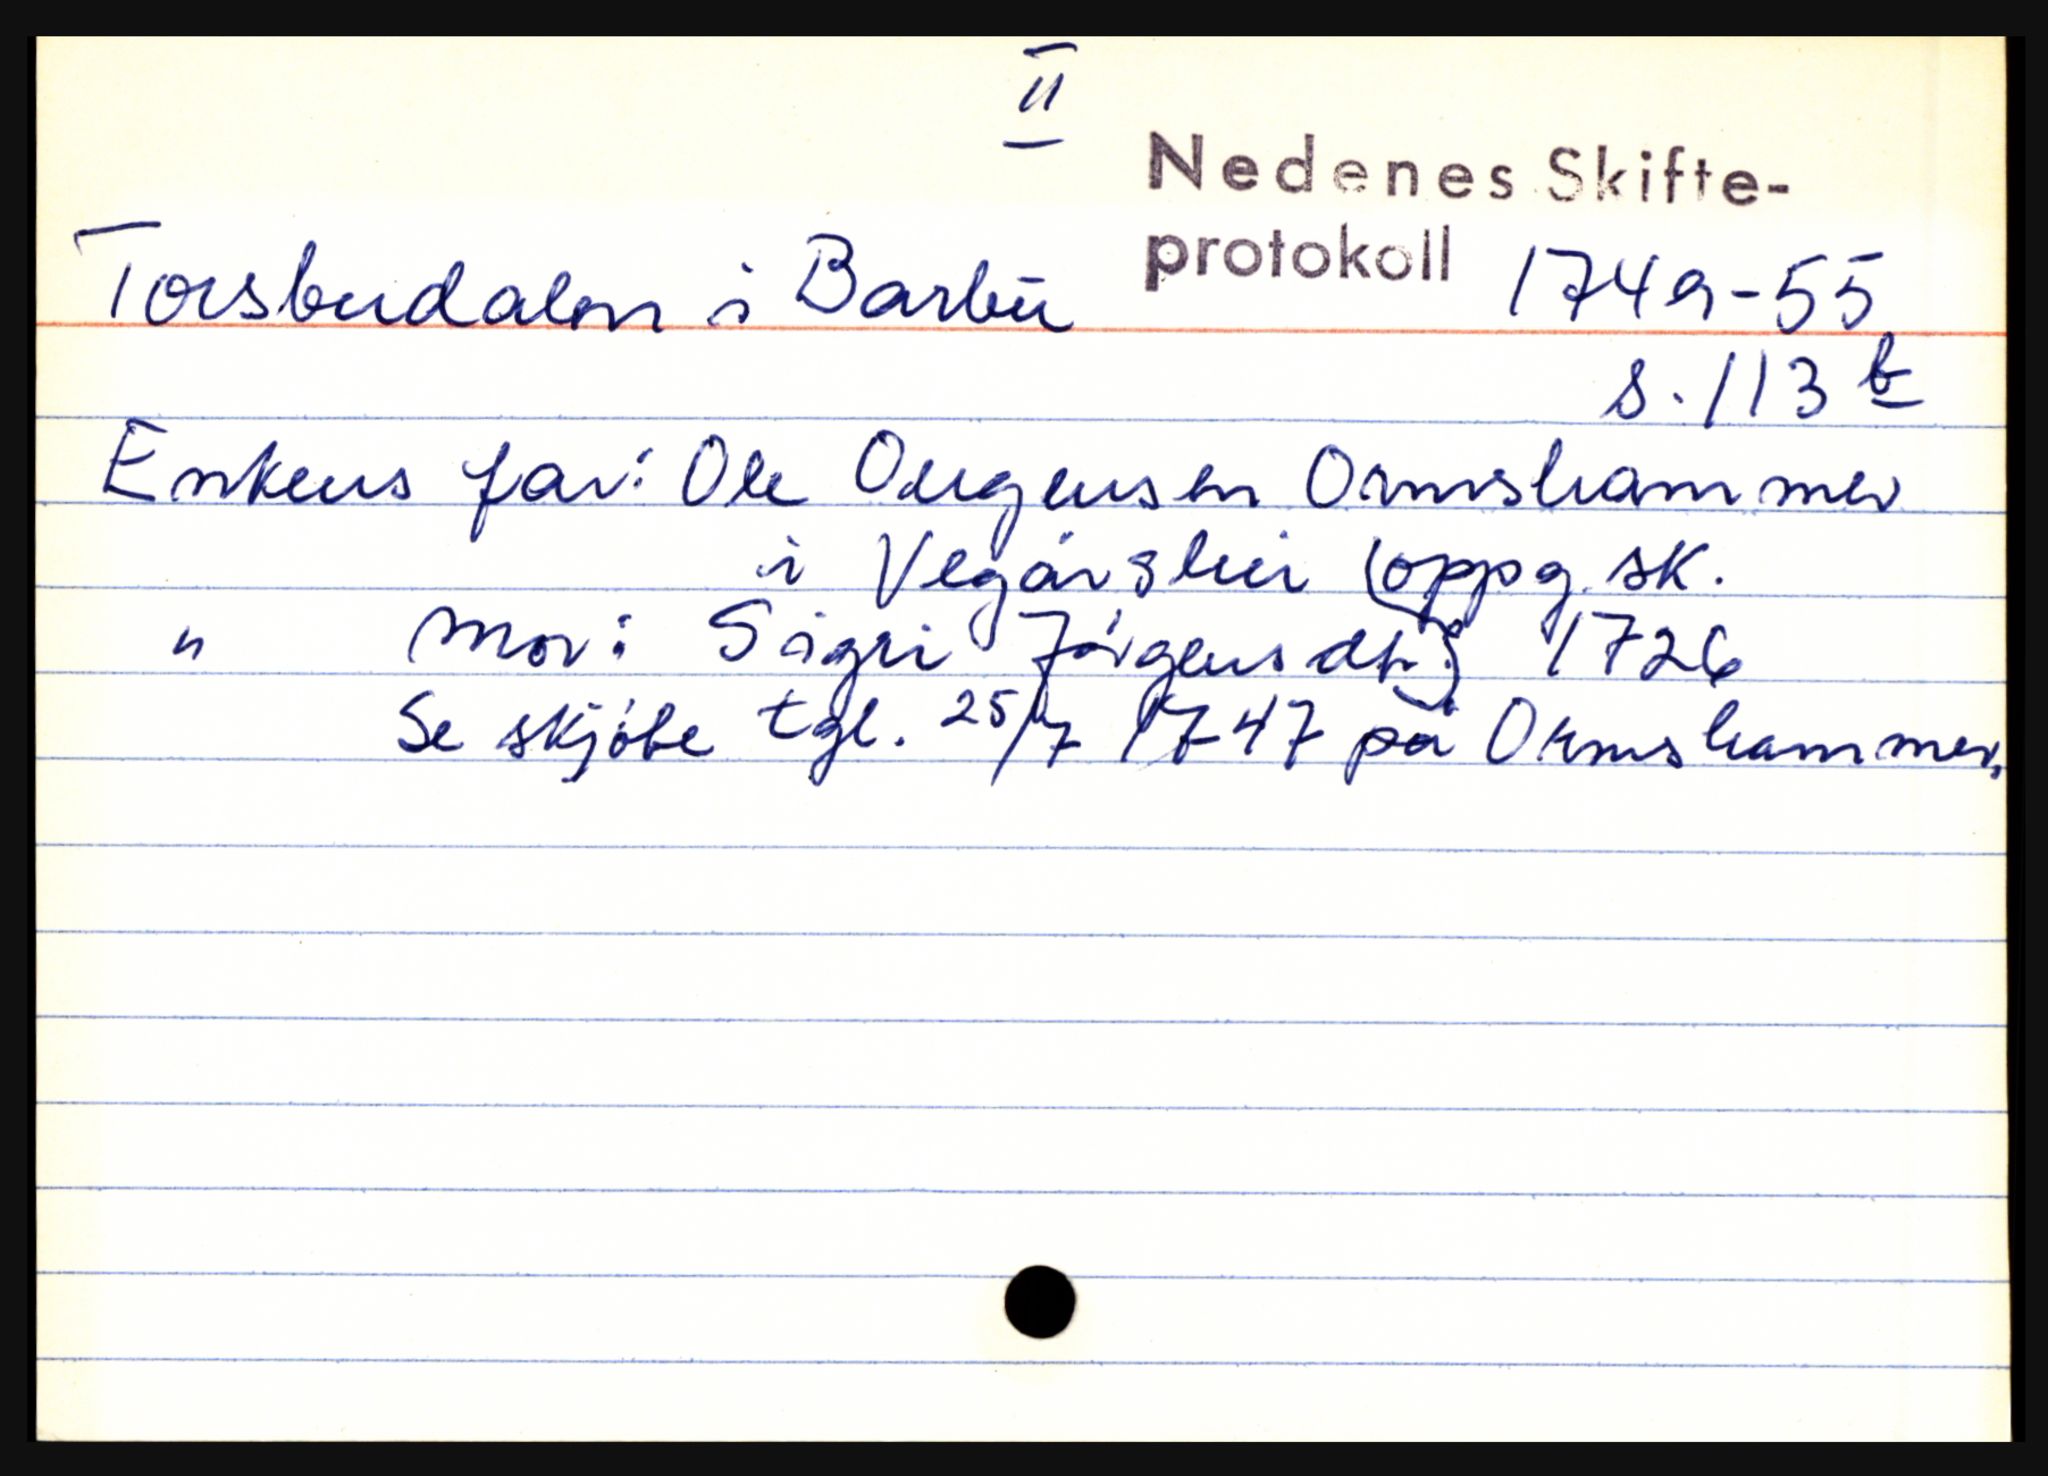 II
Nedenes Skifte-
protokoll 1749-55
Torsbudalen i Barbu
s. 113 b
Enkens far: Ole Jørgensen Ormshammer
i Vegårshei (oppg. sk.
" mor: Sigri Jörgensdtr.) 1726
Se skjöte tgl. 25/7 1747 på Ormshammer.